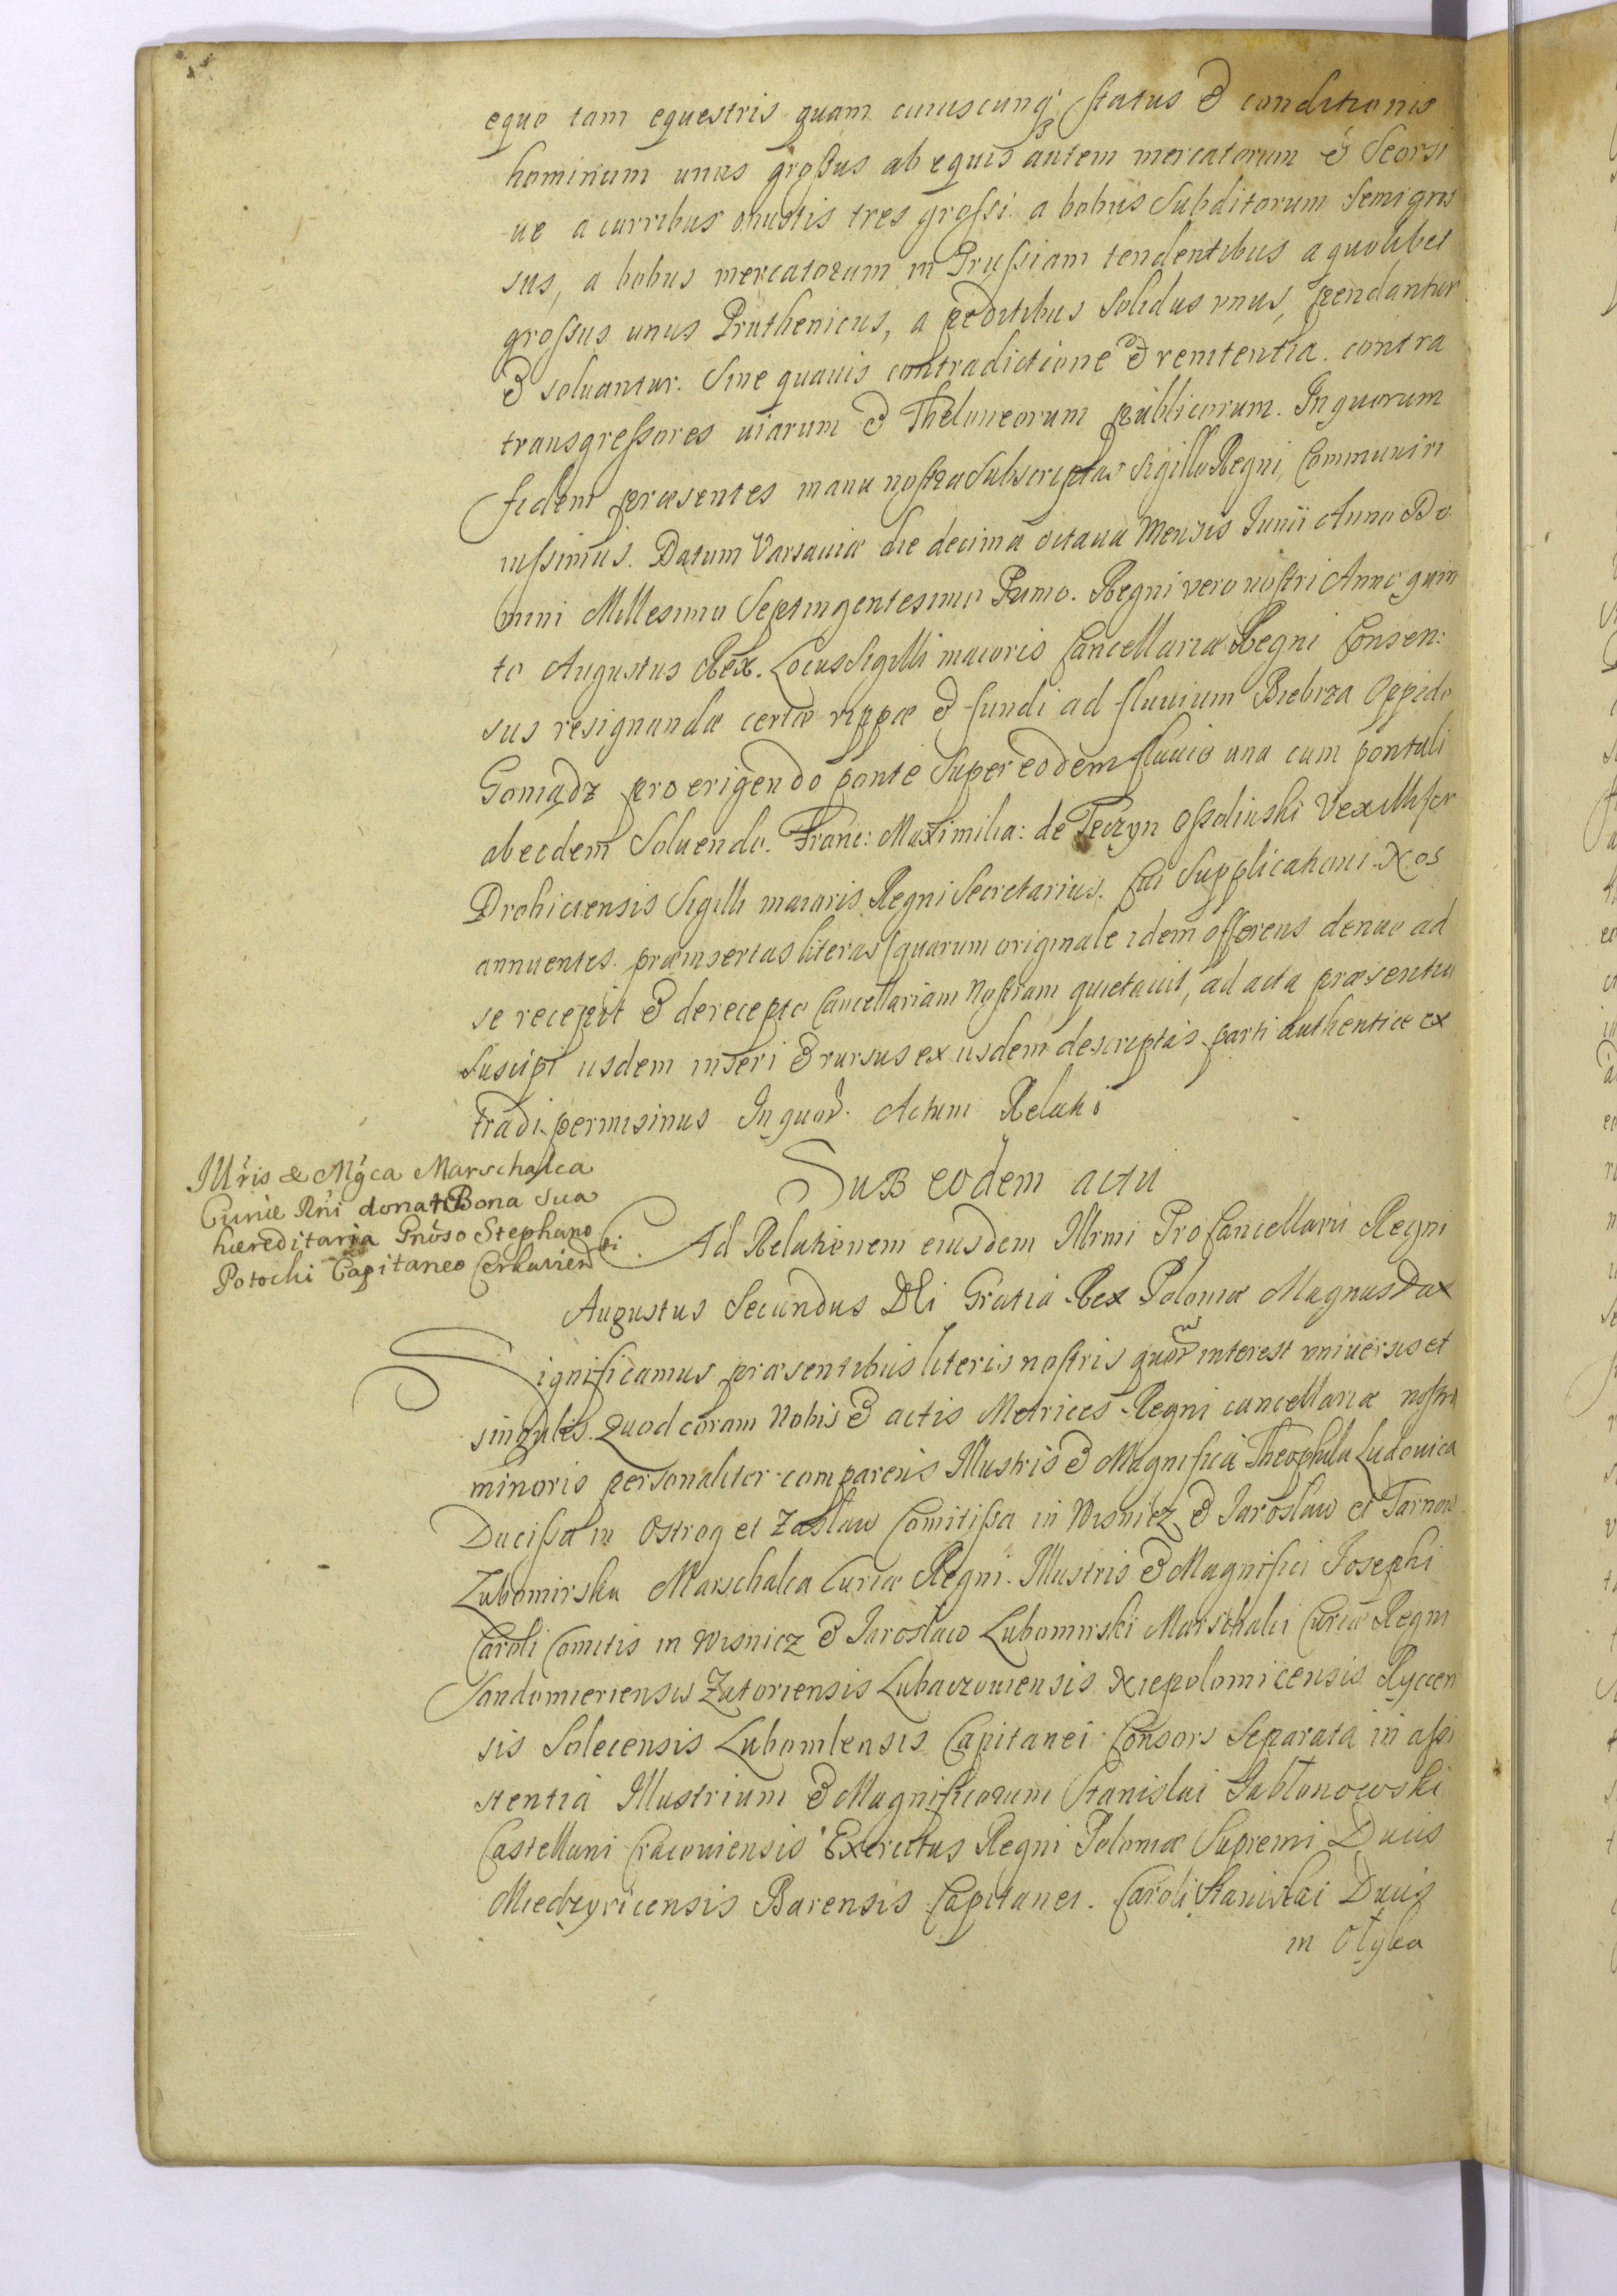 equo tam equestris quam cuiuscunq3 status & conditionis
hominum unus grossus ab equis autem mercatorum & seorsi
ue a curribus onustis tres grossi. a bobus subditorum semigros
sus, a bobus mercatorum in Prussiam tendentibus a quolibet
grossus unus Pruthenicus, a peditibus solidus unus, pendantur
& soluantur. Sine quauis contradictione & renitentia. contra
transgressores uiarum & Theloneorum publicorum. In quorum
fidem præsentes manu nostra subscriptas sigillo Regni Communiri
iussimus. Datum Varsauiæ die decima octaua Mensis Junii Anno Do
mini Millesimo Septingentesimo Primo. Regni vero nostri Anno quin
to Augustus Rex. Locus Sigilli maioris Cancellariæ Regni Consen:
sus resignandæ certæ rippæ & fundi ad fluuium Biebrza Oppido
Goniądz pro erigendo ponte super eodem fluuio una cum pontali
ab eodem soluendo. Franc: Maximilia: de Teczyn Ossolinski Vexillifer
Drohiciensis Sigilli maioris Regni Secretarius. Cui supplicationi Nos
annuentes. præinsertas literas (quarum originale idem offerens denuo ad
se recepit & de recepto Cancellariam Nostram quietauit, ad acta præsentia
suscipi iisdem inseri & rursus ex iisdem descriptas parti authentice ex
tradi permisimus In quor. Actum Relati
Sub eodem actu
Illris & Mgca Marschalca
Curiæ Rni donat Bona sua
hæreditaria Gnoso Stephano
Potocki Capitaneo Cerkavien
Ad Relationem eiusdem Illrmi Pro Cancellarii Regni
Augustus Secundus Dei Gratia Rex Poloniæ Magnus Dux
Significamus præsentibus literis nostris quor interest uniuersis et
singulis. Quod coram Nobis & actis Metrices Regni cancellariæ nostræ
minoris personaliter comparens Illustris & Magnifica Theophila Ludouica
Ducissa in Ostrog et Zasław Comitissa in Wisnicz & Jarosław et Tarnow
Lubomirska Marschalca Curiæ Regni. Illustris & Magnifici Josephi
Caroli Comitis in Wisnicz & Jarosław Lubomirski Marschalci Curiæ Regni
Sandomiriensis Zatoriensis Lubaczouiensis Niepolomicensis Rycen
sis Solecensis Lubomlensis Capitanei Consors Separata in assi
stentia Illustrium & Magnificorum Stanislai Jabłonowski
Castellani Cracouiensis Exercitus Regni Poloniæ Supremi Ducis
Miedzyricensis Barensis Capitanei. Caroli Stanislai Ducis
in Ołyka